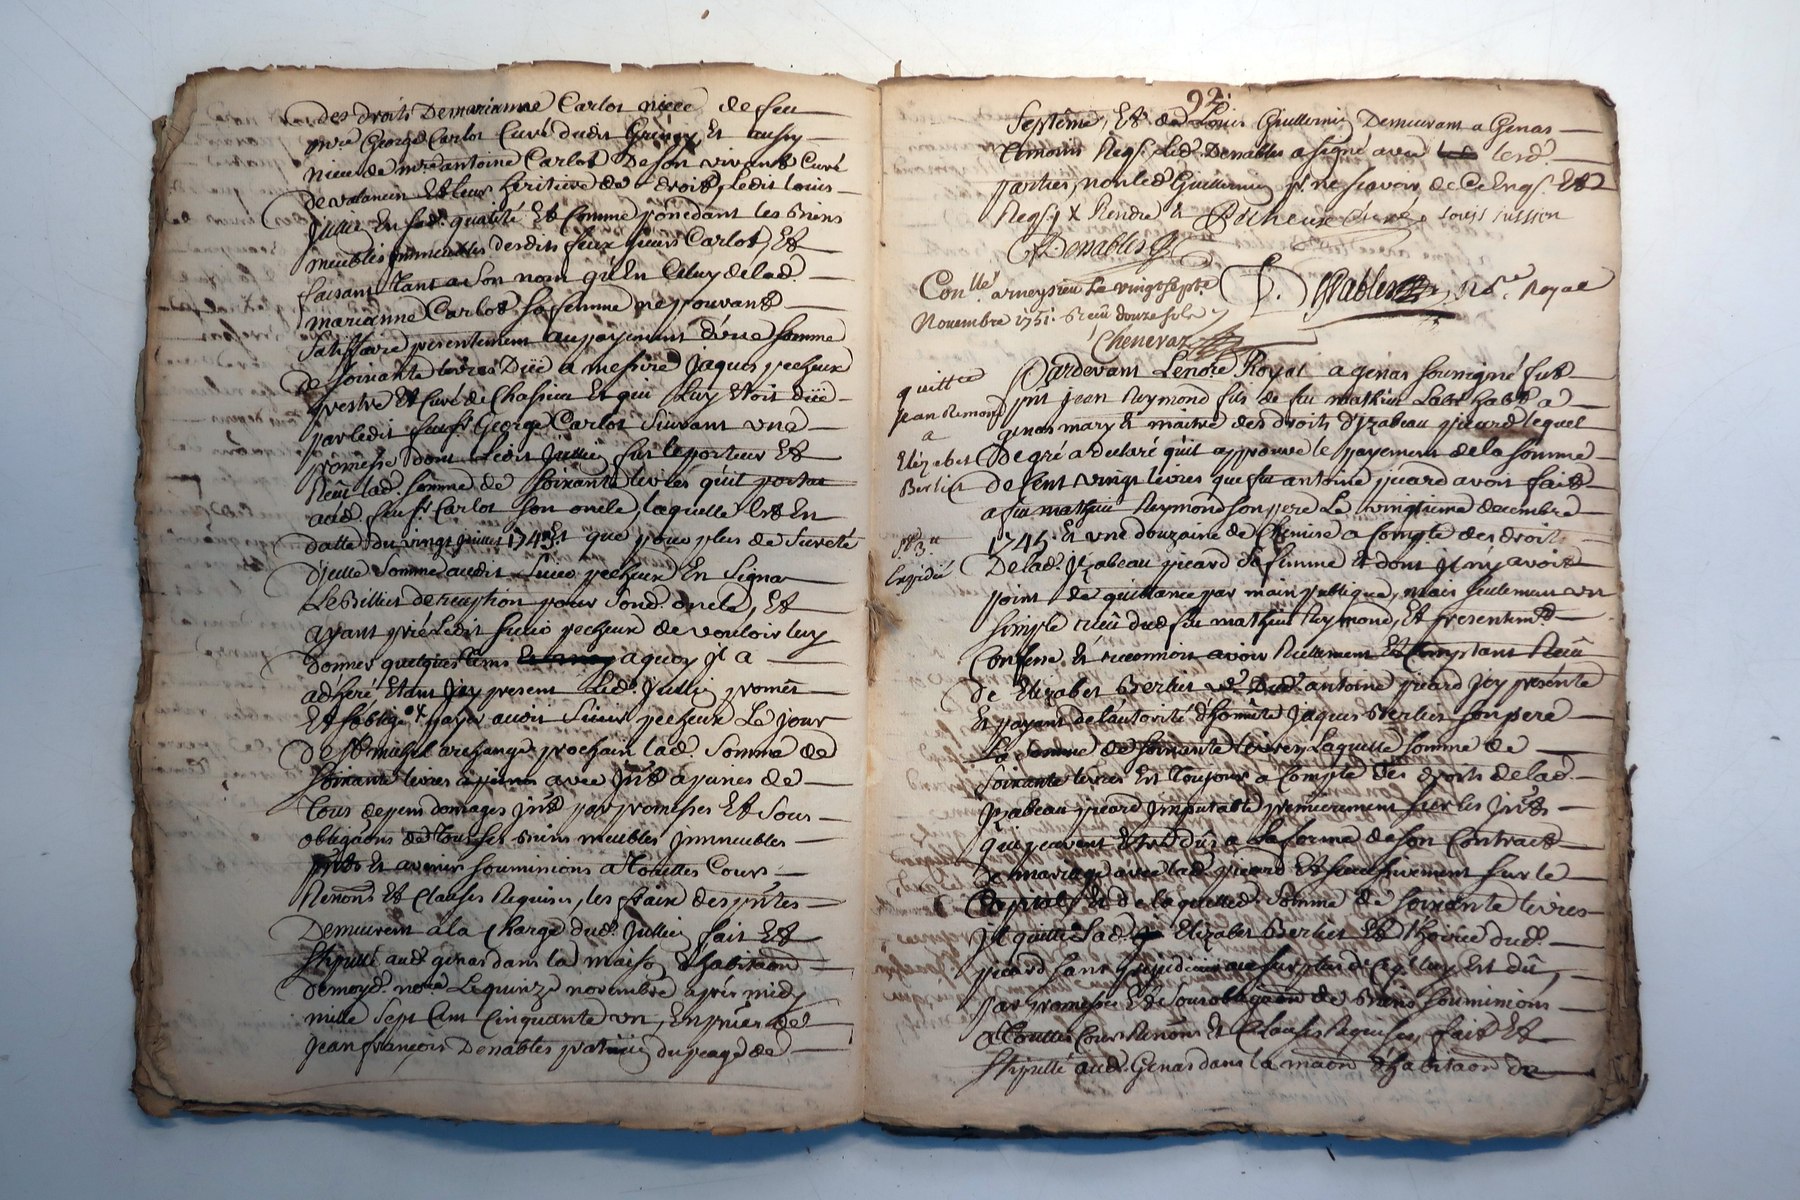 des droits de marianne Carlot niece de feu
mre George Carlot Curé dudit Grenay Et aussy
niece de mre antoine Carlot De son vivant Curé
de valancin Et leur heritiere de droit, Ledit louis
Jullin En sad. qualité Et Comme possedant les biens
meubles immeubles desdits feux sieurs Carlot, Et
faisant tant a son nom qu'En Celuy de lad.
marianne Carlot sa femme ne pouvant
satisfaire presentement au payement d'une somme
de soixante livres Düe a messire Jaques pecheux
prestre Et Curé de Chassieu Et qui luy Etoit düe
par ledit feu sr George Carlot suivant une
promesse dont ledit Jullin fut le porteur Et
Reçut lad. somme de soixante livres qu'il porta
aud. feu sr Carlot son oncle, laquelle Est En
datte du vingt juillet Et que pour plus de sureté
d'jcelle somme audit sieur pecheux En signa
Le billiet de reception pour sond. oncle, Et
ayant prié Ledit sieur pecheux de vouloir luy
donner quelques tems aquoy Jl a
adheré Etant Jcy present Led. Jullin promet
Et s'oblige payer audit Sieur pecheux Le jour
de St michel archange prochain lad. somme de
soixante livres apeine avec Jnts apeines de
tous depens domages Jnts par promesses Et sous
obligaons de tous ses biens meubles Jmmeubles
pnts Et avenir soumissions a touttes Cours
Renons Et Clauses Requises, les fraix des pntes
Demeurent à la Charge dud. Jullin fait Et
stipullé aud. genas dans la maison d'habitaon
de moyd. nore Le quinze novembre après midy
mille sept Cent Cinquante un, En pnce de
Jean françois Denables du peage de
92.
septeme, Et de Louis Guillermin Demeurant a Genas
temoins Reqs. Led. Denables a signé avec lesd.
parties, non led. Guillermin pr. ne sçavoir de Ce Enqs. Et
Reqs. X Rendre Et Pecheux Curé louis
Denables
Conllé arneyrieu Le vingt sept
Novembre 1751. Reçu douze sols
Chenevaz
Denables Nre. Royal
quittce
jean Remond
a
Elizabet
Berliet
Expedié
Pardevant Le nore Royal a genas soussigné fut
pnt jean Reymond fils de feu mathieu Labr habt a
genas mary Et maitre des droits d'Jzabeau picard lequel
De gré a declaré qu'il approuve le payement de la somme
de Cent vingt livres que feu antoine picard avoit fait
a feu mathieu Reymond son pere Le vingtieme decembre
1745. Et une douzaine de Chemise a Compte des droits
De lad. Jzabeau picard sa femme Et dont Jl n'y avoit
point de quittance par main publique, mais seulement un
simple reçu dud feu mathieu Reymond, Et presentemt
Confesse Et reconnoit avoir Reelement Et Comptant Reçû
de Elizabet Berliet ve. Dud. antoine picard Jcy presente
Et payant de l'autorité d'honnête Jaques Berliet son pere
La somme de soixante livres, Laquelle somme de
soixante livres Est toujours a Compte des droits de lad.
Jzabeau picard Jmputable premierement sur les Jnts
qui peuvent Etre dûs a la forme de son Contract
de mariage avec lad. picard Et successivement sur le
Capital, Et de laquelled. somme de soixante livres
Jl quitte lad. Elizabet Berliet Et l'hoirie dud.
picard sans prejudice au surplus de luy Est dû,
par promesse Et sous obligaon de biens soumissions
a touttes Cours Renons Et Clauses Requises, fait Et
stipullé aud. Genas dans la maon d'habitaon du